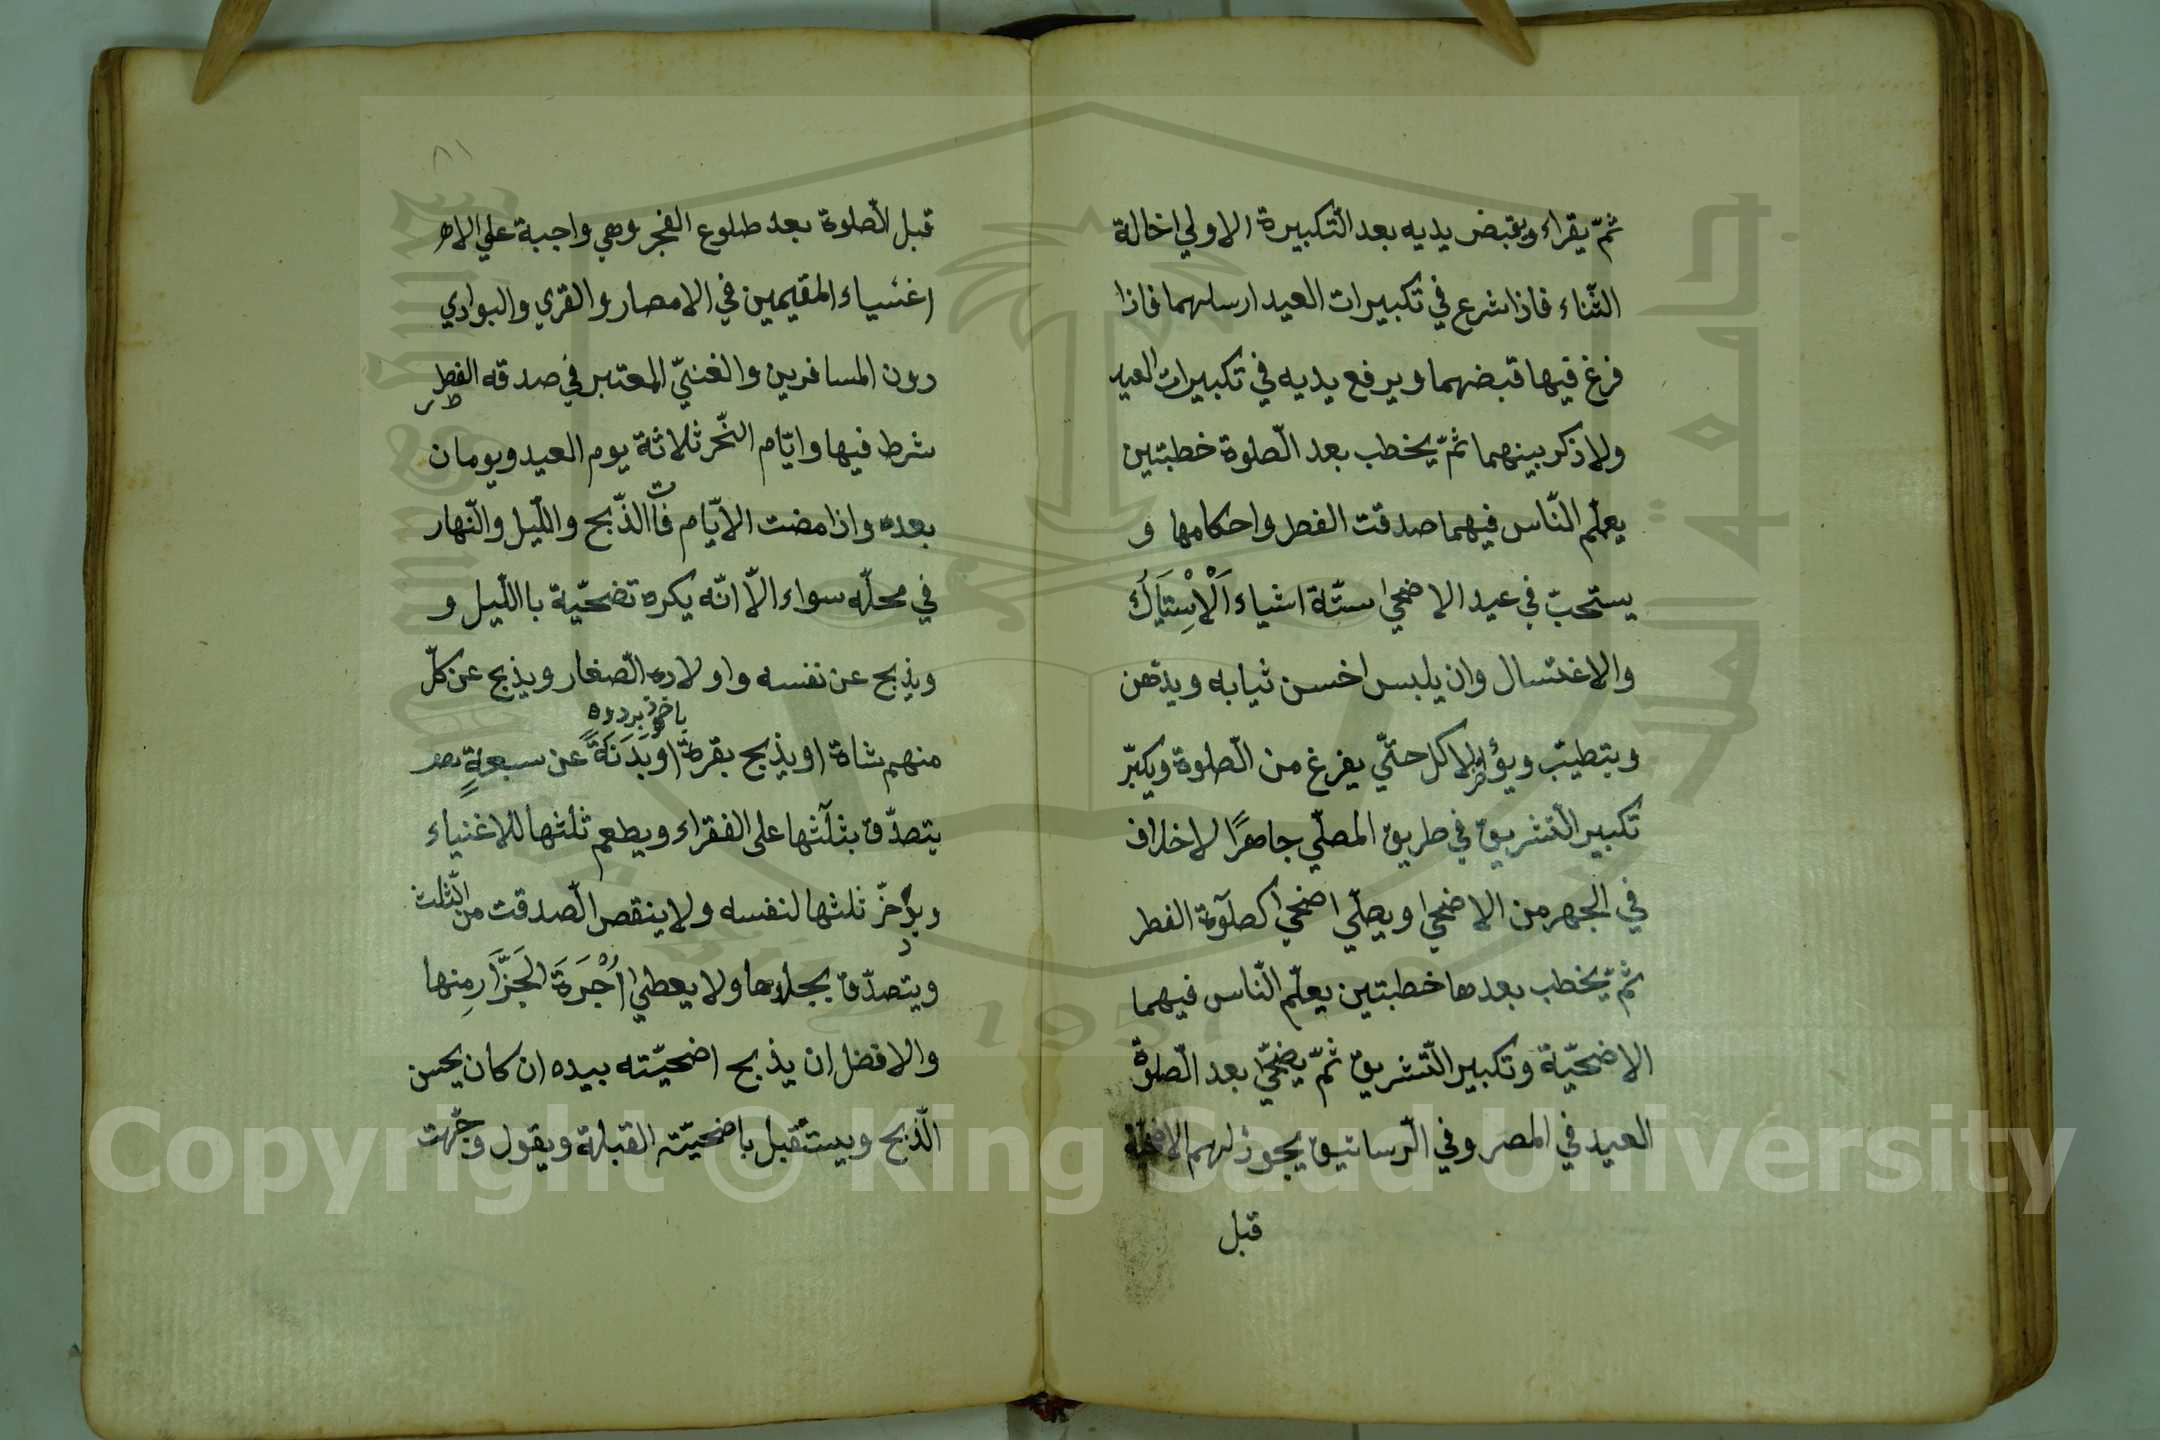 ثمّ يقراء ويقبض يديه بعد التّكبيرة الاولي اخالة
الثّناء فاذا شرع في تكبيرات العيد ارسلهما فاذا
فرغ فيها قبضهما ويرفع يديه في تكبيرات العيد
ولا ذكر بينهما ثمّ يخطب بعد الصّلوة خطبتين
يعلّم النّاس فيهما صدقت الفطر واحكامها و
يستحبّ في عيد الاضحي ستّة اشياء اَلْاِسْتَيَاكُ
والاغتسال وان يلبس اخسن ثيابه ويدّهن
ويتطيّب ويؤخر الاكل حتّي يفرغ من الصّلوة ويكبّر
تكبير التّشريق في طريق المصلّي جاهرًا لا خلاف
في الجهر من الاضحي ويصلّي اضحي كصلوة الفطر
ثمّ يخطب بعدها خطبتين يعلّم النّاس فيهما
الاضحيّة وتكبير التّشريق ثمّ يضحّي بعد الصّلوة
العيد في المصر وفي الرّساتيق يجوز لهم الاضحيّة
قبل
٨١
قبل الصّلوة بعد طلوع الفجر وهي واجبة علي الاحر
اغنياء المقيمين في الامصار والقري والبوادي
دون المسافرين والغنيّ المعتبر في صدقه الفطر
شرط فيها وايّام النّحر ثلاثة يوم العيد ويومان
بعده واذا مضت الايّام فات الذّبح واللّيل والنّهار
في محلّه سواء الّا انّه يكره تضحيّة باللّيل و
ويذبح عن نفسه واولاده الصّغار ويذبح عن كلّ
منهم شاة او يذبح بقرة او بَدَنَةً عن سبعةٍ
يتصدّق بثلثها على الفقراء ويطعم ثلثها للاغنياء
ويدّخّر ثلثها لنفسه ولا ينقص الصّدقت من الثّلث
ويتصدّق بجلدها ولا يعطي اُجْرَةَ الجَزَّارِ مِنها
والافضل ان يذبح اضحيّته بيده ان كان يحسن
الذّبح ويستقبل باضحيّته القبلة ويقول وجّهت
جامعة الملك سعود
1957
Copyright © King Saud University